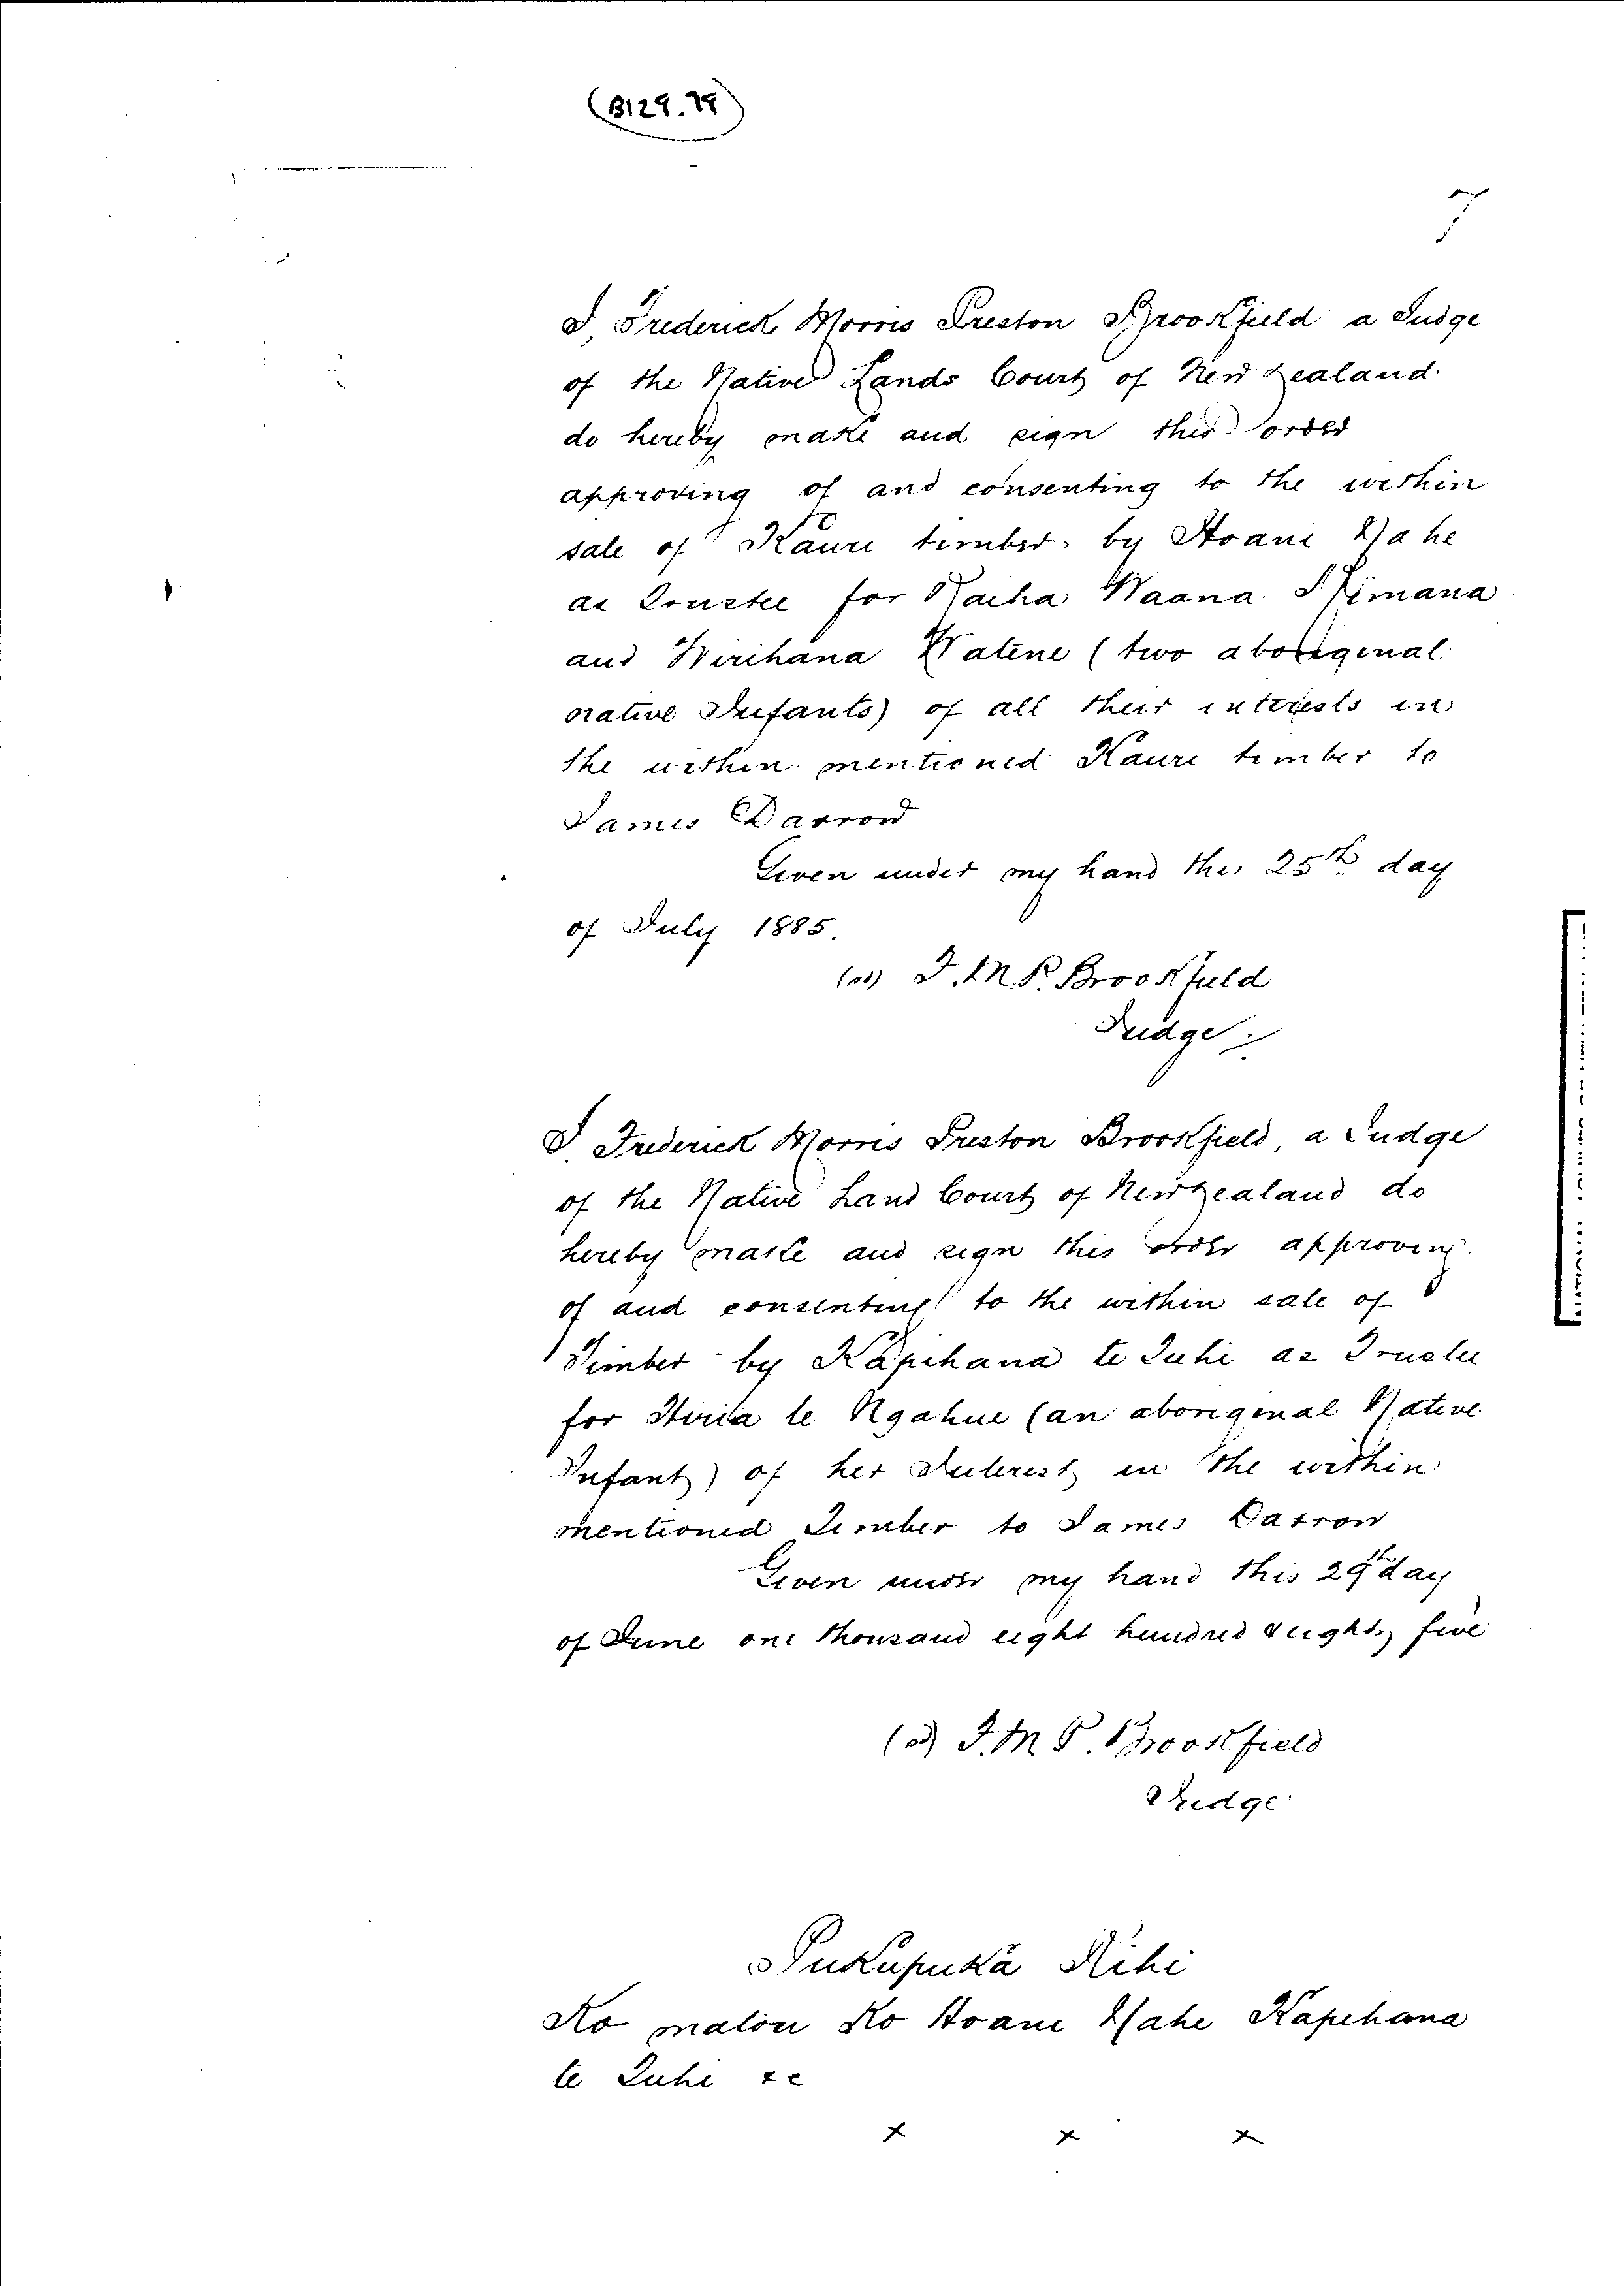 (B129.79)
7
I, Frederick Morris Preston Brookfield a Judge
of the Native Lands Court of New Zealand
do hereby make and sign this order
approving of and consenting to the within
sale of Kauri timber by Hoani Nahe
as Trustee for Raiha Waana
and Wirihana Watene (two aboriginal
native Infants) of all their interests in
the within mentioned Kauri timber to
James Darrow
Given under my hand this 25th day
of July 1885.
(sd) F. M. P. Brookfield
Judge
I Frederick Morris Preston Brookfield, a Judge
of the Native Land Court of New Zealand do
hereby make and sign this order approving
of and consenting to the within sale of
Timber by Kapihana te Tuhi as Trustee
for Hiria te Ngahue (an aboriginal Native
Infant) of her Interest in the within
mentioned Timber to James Darrow
Given under my hand this 29th day
of June one thousand eight hundred & eighty five
(sd) F. M. P. Brookfield
Judge
Pukapuka Rihi
Ko matou Ko Hoani Nahe Kapihana
te Tuhi &c
x x x